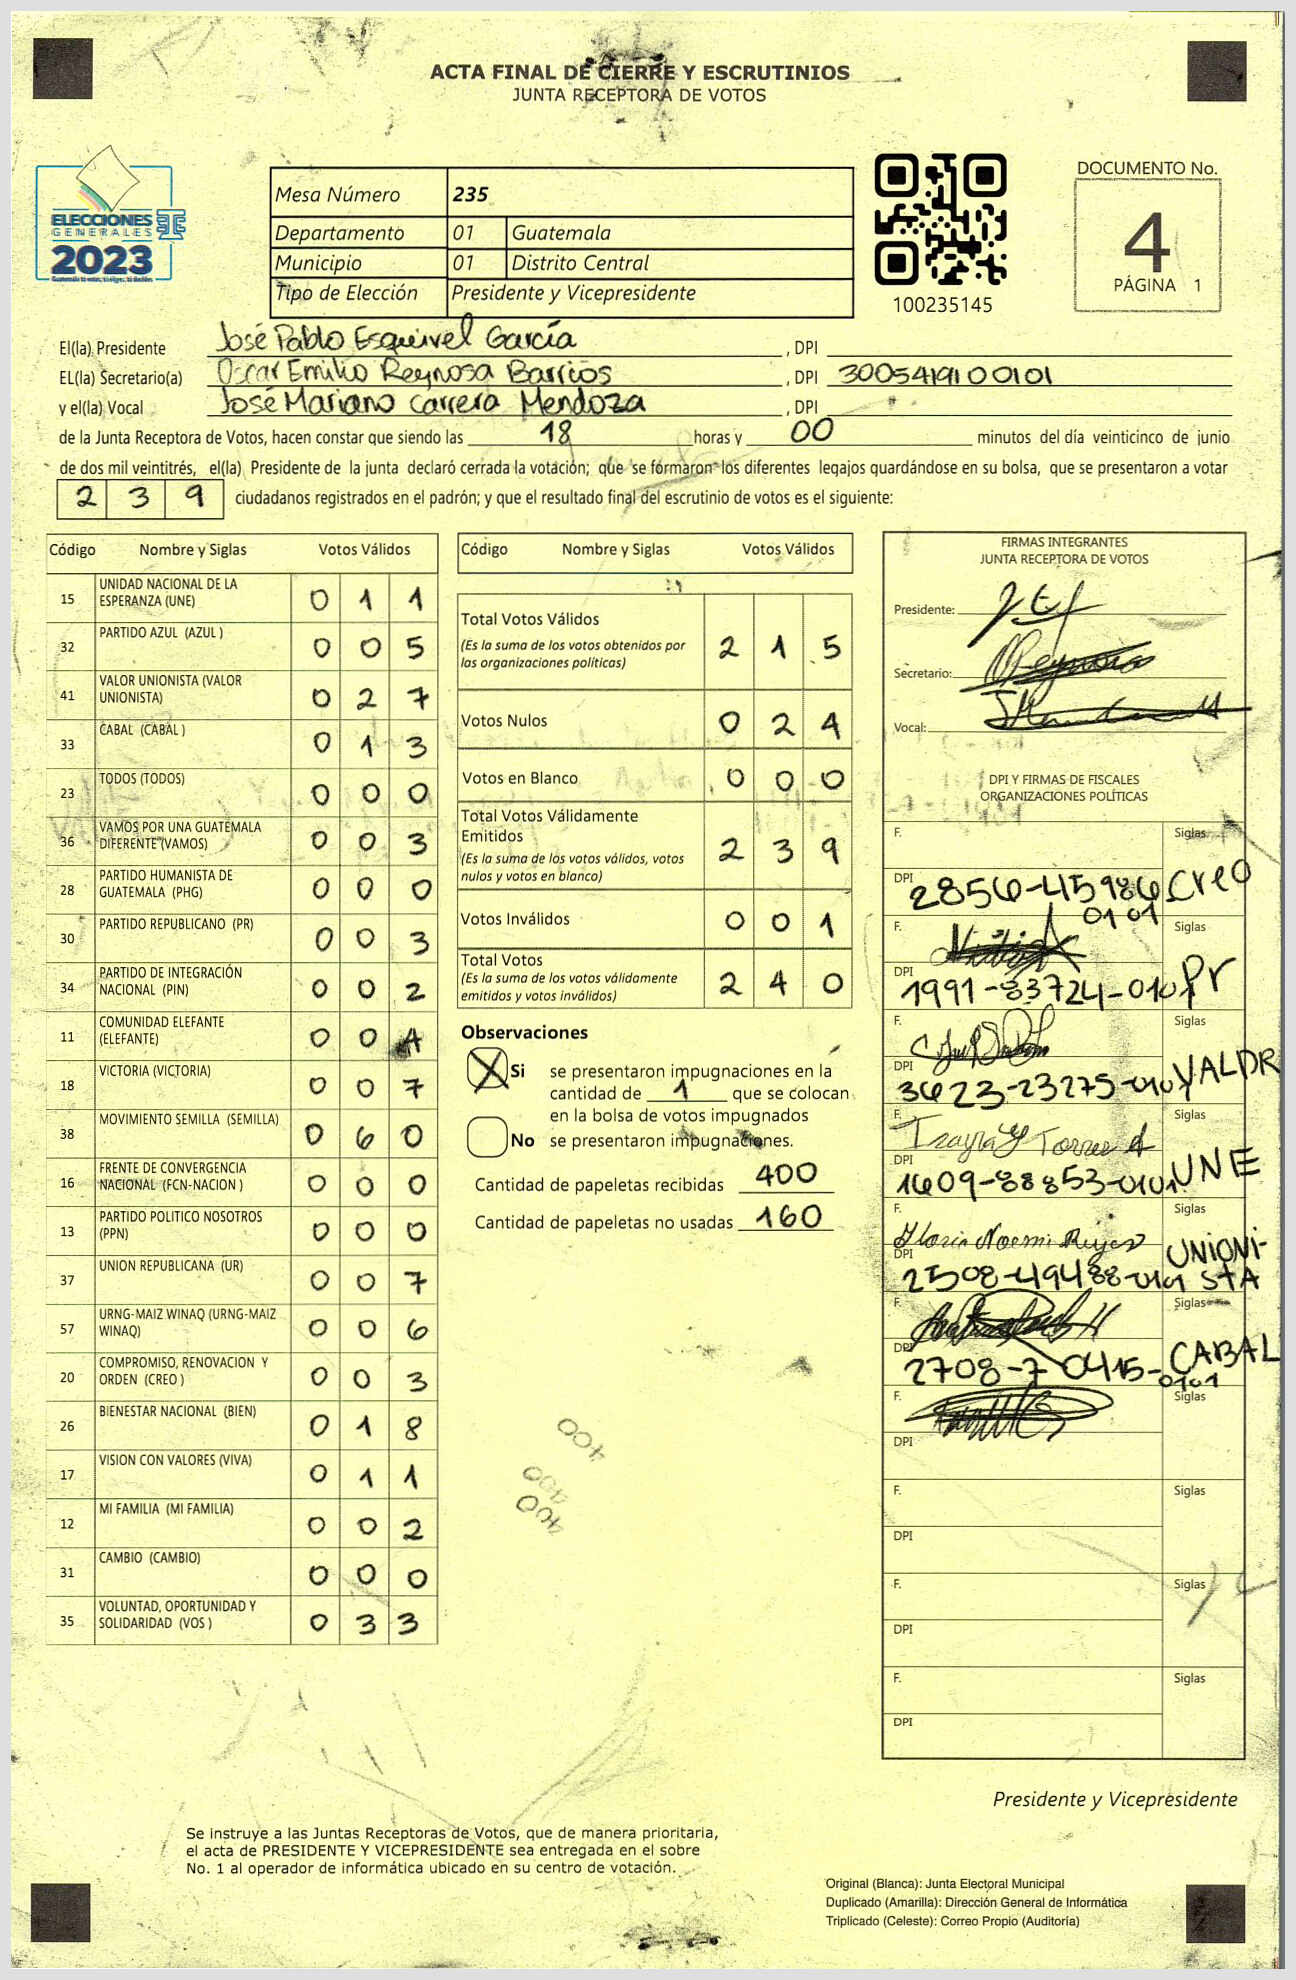 ACTA FINAL DE CIERRE Y ESCRUTINIOS
JUNTA RECEPTORA DE VOTOS
ELECCIONES
GENERALES
2023
Mesa Número 235
Departamento 01 Guatemala
Municipio 01 Distrito Central
Tipo de Elección Presidente y Vicepresidente
100235145
DOCUMENTO No.
4
PÁGINA 1
El(la) Presidente José Pablo Esquivel García , DPI
EL(la) Secretario(a) Oscar Emilio Reynosa Barrios , DPI 3005419100101
y el(la) Vocal José Mariano Carrera Mendoza , DPI
de la Junta Receptora de Votos, hacen constar que siendo las 18 horas y 00 minutos del día veinticinco de junio
de dos mil veintitrés, el(la) Presidente de la junta declaró cerrada la votación; que se formaron los diferentes legajos guardándose en su bolsa, que se presentaron a votar
2 3 9 ciudadanos registrados en el padrón; y que el resultado final del escrutinio de votos es el siguiente:
Código Nombre y Siglas Votos Válidos
15 UNIDAD NACIONAL DE LA ESPERANZA (UNE) 0 1 1
32 PARTIDO AZUL (AZUL ) 0 0 5
41 VALOR UNIONISTA (VALOR UNIONISTA) 0 2 7
33 CABAL (CABAL ) 0 1 3
23 TODOS (TODOS) 0 0 0
36 VAMOS POR UNA GUATEMALA DIFERENTE (VAMOS) 0 0 3
28 PARTIDO HUMANISTA DE GUATEMALA (PHG) 0 0 0
30 PARTIDO REPUBLICANO (PR) 0 0 3
34 PARTIDO DE INTEGRACIÓN NACIONAL (PIN) 0 0 2
11 COMUNIDAD ELEFANTE (ELEFANTE) 0 0
18 VICTORIA (VICTORIA) 0 0 7
38 MOVIMIENTO SEMILLA (SEMILLA) 0 6 0
16 FRENTE DE CONVERGENCIA NACIONAL (FCN-NACION ) 0 0 0
13 PARTIDO POLITICO NOSOTROS (PPN) 0 0 0
37 UNION REPUBLICANA (UR) 0 0 7
57 URNG-MAIZ WINAQ (URNG-MAIZ WINAQ) 0 0 6
20 COMPROMISO, RENOVACION Y ORDEN (CREO ) 0 0 3
26 BIENESTAR NACIONAL (BIEN) 0 1 8
17 VISION CON VALORES (VIVA) 0 1 1
12 MI FAMILIA (MI FAMILIA) 0 0 2
31 CAMBIO (CAMBIO) 0 0 0
35 VOLUNTAD, OPORTUNIDAD Y SOLIDARIDAD (VOS ) 0 3 3
Código Nombre y Siglas Votos Válidos
Total Votos Válidos 2 1 5
(Es la suma de los votos obtenidos por
las organizaciones políticas)
Votos Nulos 0 2 4
Votos en Blanco 0 0 0
Total Votos Válidamente
Emitidos 2 3 9
(Es la suma de los votos válidos, votos
nulos y votos en blanco)
Votos Inválidos 0 0 1
Total Votos 2 4 0
(Es la suma de los votos válidamente
emitidos y votos inválidos)
Observaciones
X Si se presentaron impugnaciones en la
cantidad de 1 que se colocan
en la bolsa de votos impugnados
No se presentaron impugnaciones.
Cantidad de papeletas recibidas 400
Cantidad de papeletas no usadas 160
400
400
400
FIRMAS INTEGRANTES
JUNTA RECEPTORA DE VOTOS
Presidente:
Secretario:
Vocal:
DPI Y FIRMAS DE FISCALES
ORGANIZACIONES POLÍTICAS
F. Siglas
DPI 2856-45986 0101 Creo
F. Siglas
DPI 1991-83724-0101 Pr
F. Siglas
DPI 3623-23275-0101 VALOR
F. Siglas
DPI 1609-88853-0101 UNE
F. Gloria Noemi Reyes Siglas
DPI 2508-49488-0101 UNIONI-
STA
F. Siglas
DPI 2708-70415-0101 CABAL
F. Siglas
DPI
F. Siglas
DPI
F. Siglas
DPI
F. Siglas
DPI
Presidente y Vicepresidente
Se instruye a las Juntas Receptoras de Votos, que de manera prioritaria,
el acta de PRESIDENTE Y VICEPRESIDENTE sea entregada en el sobre
No. 1 al operador de informática ubicado en su centro de votación.
Original (Blanca): Junta Electoral Municipal
Duplicado (Amarilla): Dirección General de Informática
Triplicado (Celeste): Correo Propio (Auditoría)